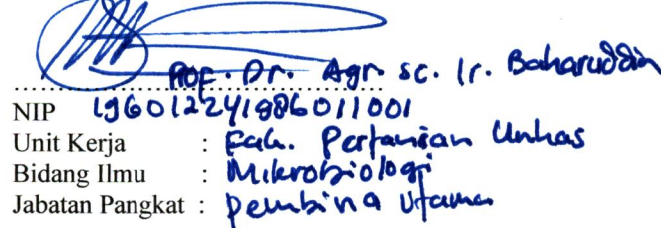 Prof. Dr. Agr. Sc. Ir. Baharuddin
NIP 196012241986011001
Unit Kerja : Fak. Pertanian Unhas
Bidang Ilmu : Mikrobiologi
Jabatan Pangkat : Pembina Utama